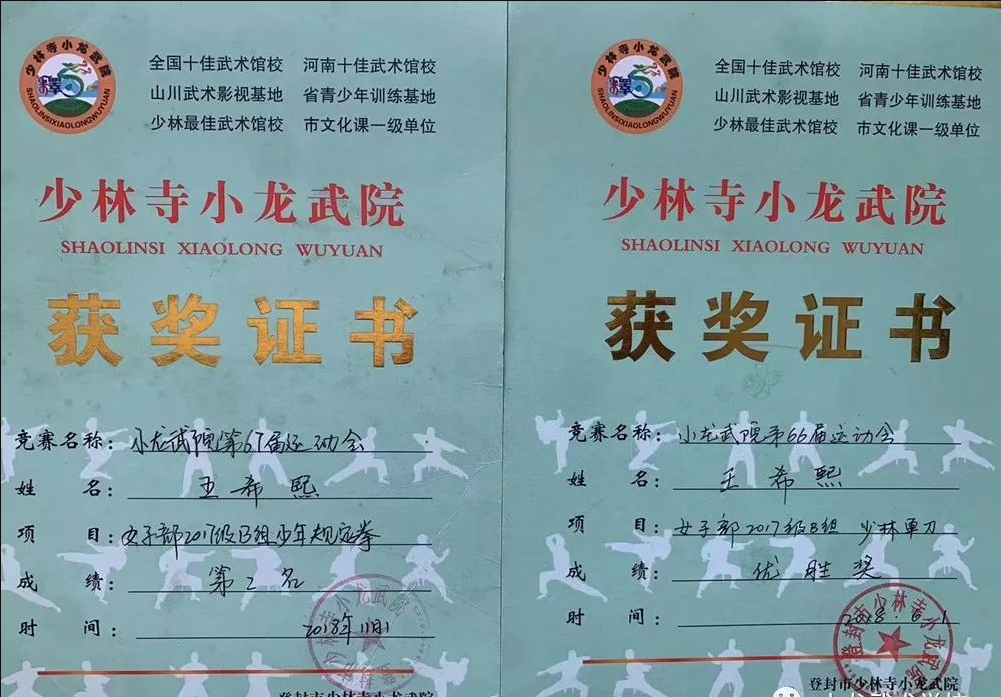 少林寺小龙武院
SHAOLINSIXIAOLONGWUYUAN
全国十佳武术馆校 河南十佳武术馆校
山川武术影视基地 省青少年训练基地
少林最佳武术馆校 市文化课一级单位
少林寺小龙武院
SHAOLINSI XIAOLONG WUYUAN
获奖证书
竞赛名称：小龙武院第67届运动会
姓 名：王希熙
项 目：女子部2017级B组少年规定拳
成 绩：第2名
时 间：2018年11月1
登封市少林寺小龙武院
少林寺小龙武院
SHAOLINSIXIAOLONGWUYUAN
全国十佳武术馆校 河南十佳武术馆校
山川武术影视基地 省青少年训练基地
少林最佳武术馆校 市文化课一级单位
少林寺小龙武院
SHAOLINSI XIAOLONG WUYUAN
获奖证书
竞赛名称：小龙武院第66届运动会
姓 名：王希熙
项 目：女子部2017级B组 少林单刀
成 绩：优胜奖
时 间：2018.6.1
登封市少林寺小龙武院